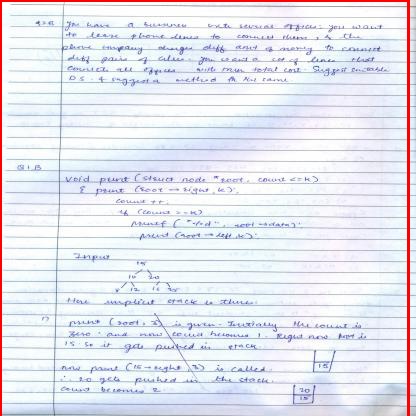 Q2B You have a business with several offices. you want
to lease phone lines to connect them, & the
phone company charges diff amt of money to connect
diff pairs of cities. you want a set of lines that
connects all offices with min total cost. Suggest suitable
D.S. & suggest a method to the same
Q1.B
void print (struct node *root, count <= k)
{ print (root → right, k);
count ++;
if (count == k)
printf (" %d", root → data);
print (root → left, k);
Input
15
10 20
8 12 16 25
Here implicit stack is there.
1) print (root, 3) is given. Initially the count is
zero and now count becomes 1. Right now root is
15 so it gets pushed in stack.
15
now print (15 → right 3) is called.
∴ 20 gets pushed in the stack.
count becomes 2.
20
15